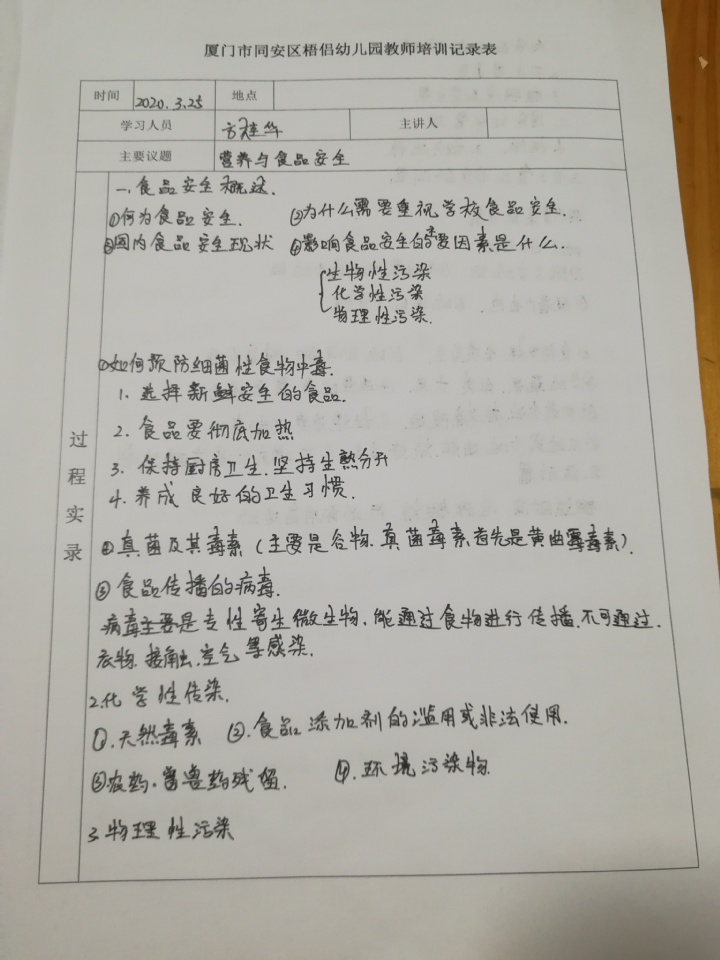 厦门市同安区梧侣幼儿园教师培训记录表
时间 2020.3.25 地点
学习人员 方桂华 主讲人
主要议题 营养与食品安全
过程实录
一、食品安全概述.
①何为食品安全. ②为什么需要重视学校食品安全.
③国内食品安全现状 ④影响食品安全的主要因素是什么.
生物性污染
化学性污染
物理性污染.
①如何预防细菌性食物中毒.
1. 选择新鲜安全的食品.
2. 食品要彻底加热
3. 保持厨房卫生.坚持生熟分开
4. 养成良好的卫生习惯.
②真菌及其毒素(主要是谷物.真菌毒素首先是黄曲霉毒素).
③食品传播的病毒.
病毒主要是专性寄生微生物.能通过食物进行传播.不可通过.
衣物.接触.空气等感染.
2.化学性传染.
①.天然毒素 ②.食品添加剂的滥用或非法使用.
③农药.畜兽药残留. ④.环境污染物.
3.物理性污染